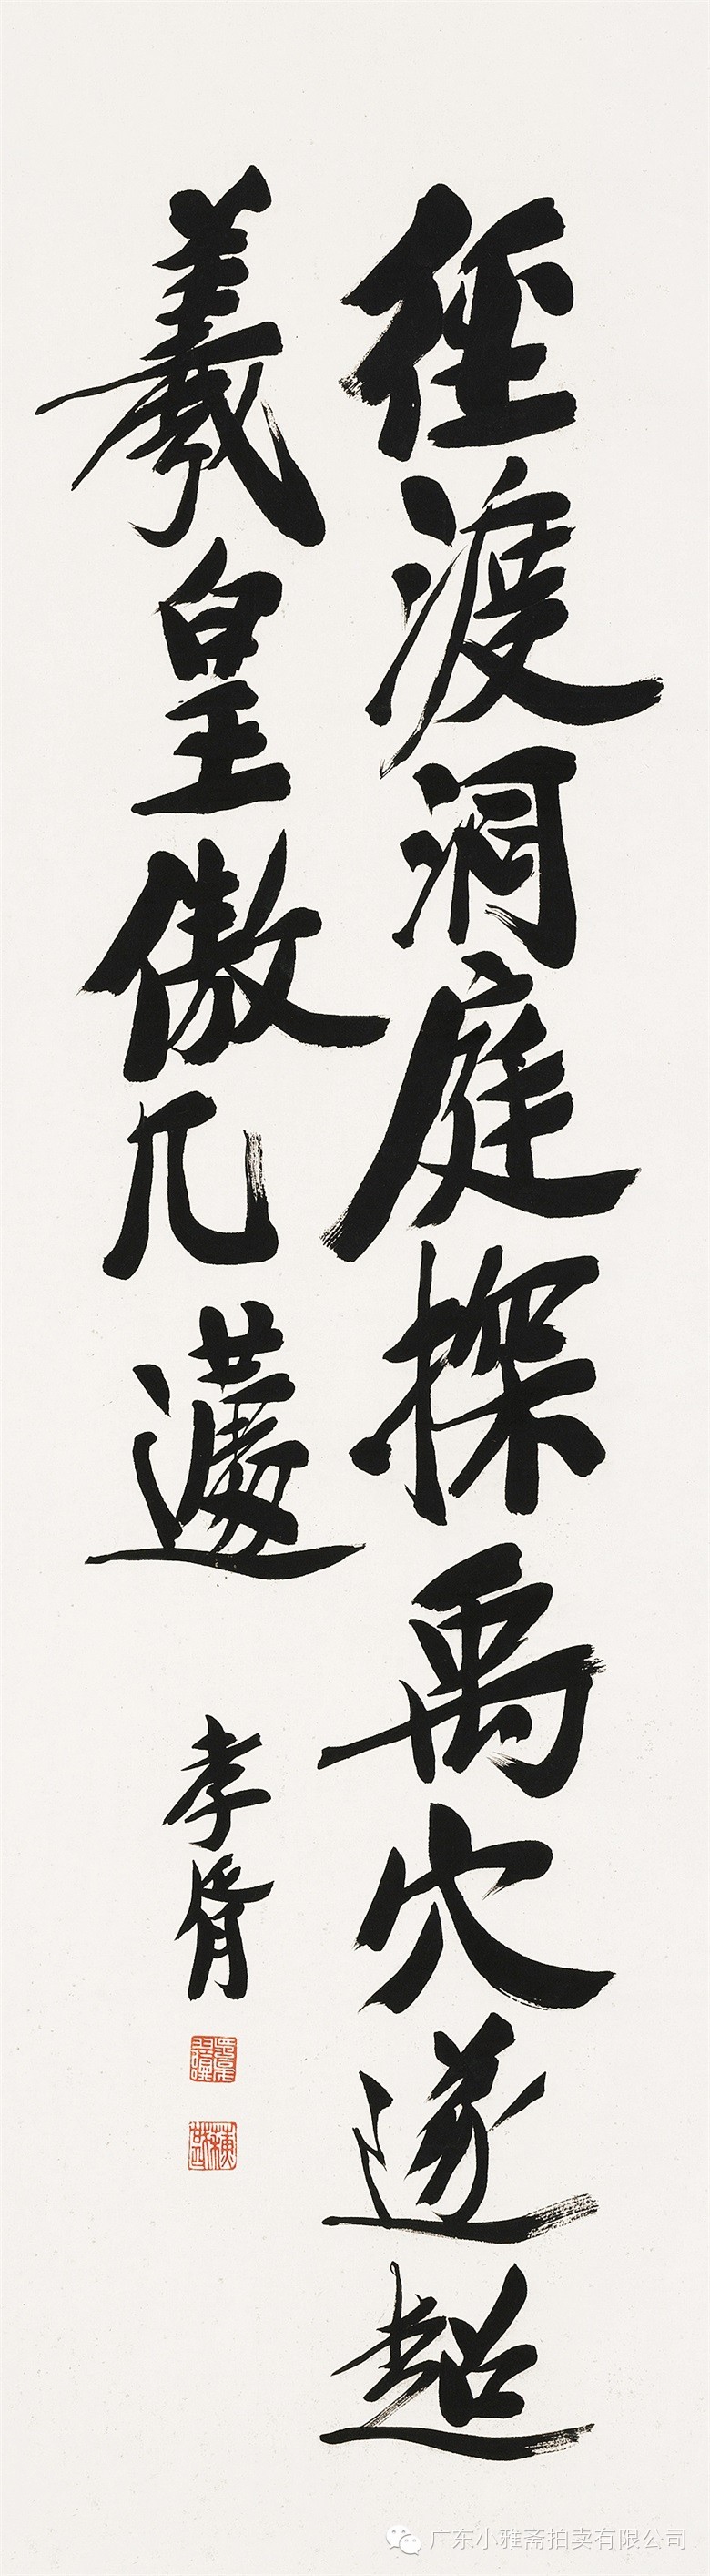 徑渡洞庭探禹穴遂超
羲皇傲几蘧
孝胥
广东小雅斋拍卖有限公司